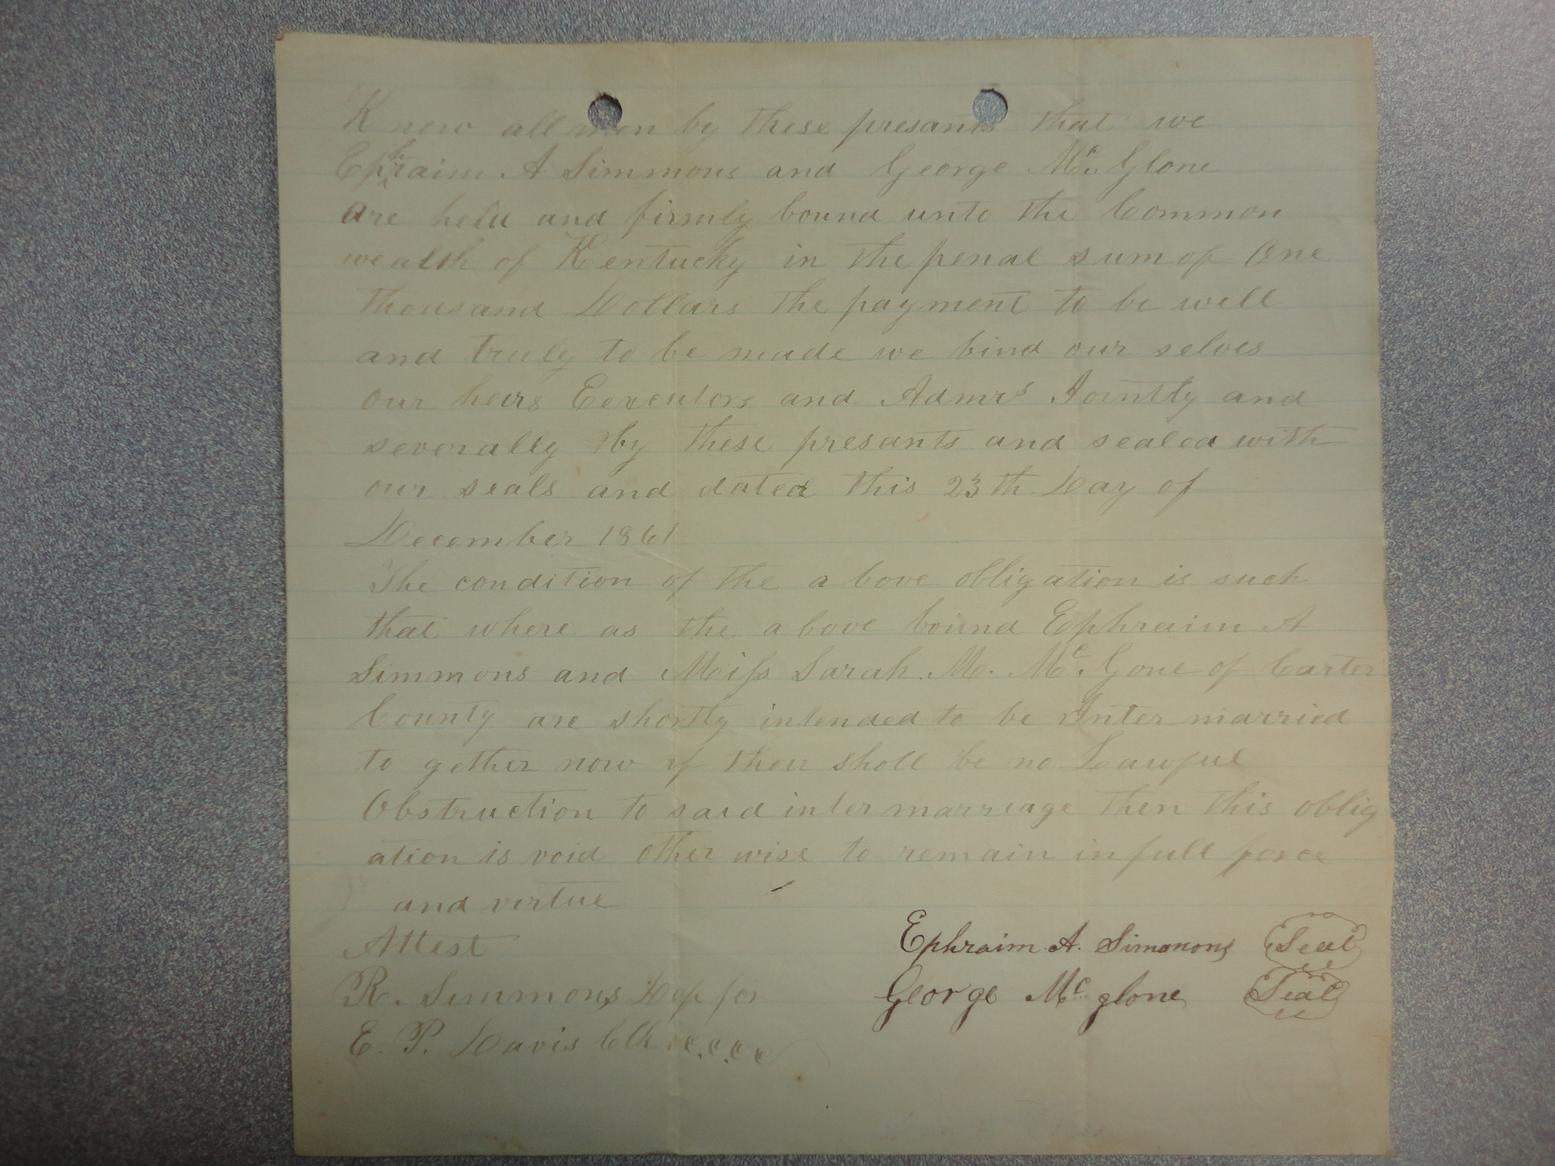 Know all men by these presants that we
Ephraim A Simmons and George Mc. Glone
are held and firmly bound unto the Common
wealth of Kentucky in the penal sum of One
thousand Dollars the payment to be well
and truly to be made we bind our selves
our heirs Eexcutors and Admrs Jointly and
severally by these presants and sealed with
our seals and dated this 23th Day of
December 1861
The condition of the above obligation is such
that where as the above bound Ephraim A
Simmons and Miss Sarah. M. Mc. Gone of Carter
County are shortly intended to be Inter married
to gether now if their shall be no Lawful
Obstruction to said inter marriage then this oblig
ation is void other wise to remain in full force
and virtue
Attest Ephraim A. Simmons Seal
R. Simmons Dep for George Mc glone Seal
E. P. Davis Clk C.C.C.C